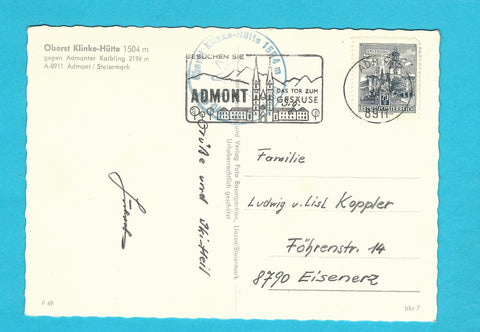 Oberst Klinke-Hütte 1504 m
gegen Admonter Kaibling 2196 m
A-8911 Admont / Steiermark
Oberst Klinke-Hütte 1504 m
BESUCHEN SIE
ADMONT
DAS TOR ZUM
GESÄUSE
8911
Grüße und Ski-Heil
und Verlag Foto Baumgartner, Liezen/Steiermark
Urheberrechtlich geschützt
Familie
Ludwig u. Lisl Koppler
Föhrenstr. 14
8790 Eisenerz
P 49
bkr 7